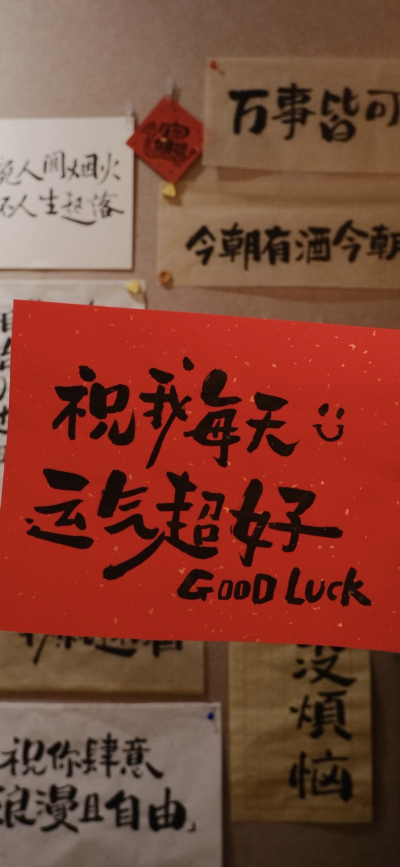 万事皆可
今朝有酒今朝
人间烟火
人生起落
祝我每天
运气超好
GOOD LUCK
没烦恼
祝你肆意
浪漫且自由